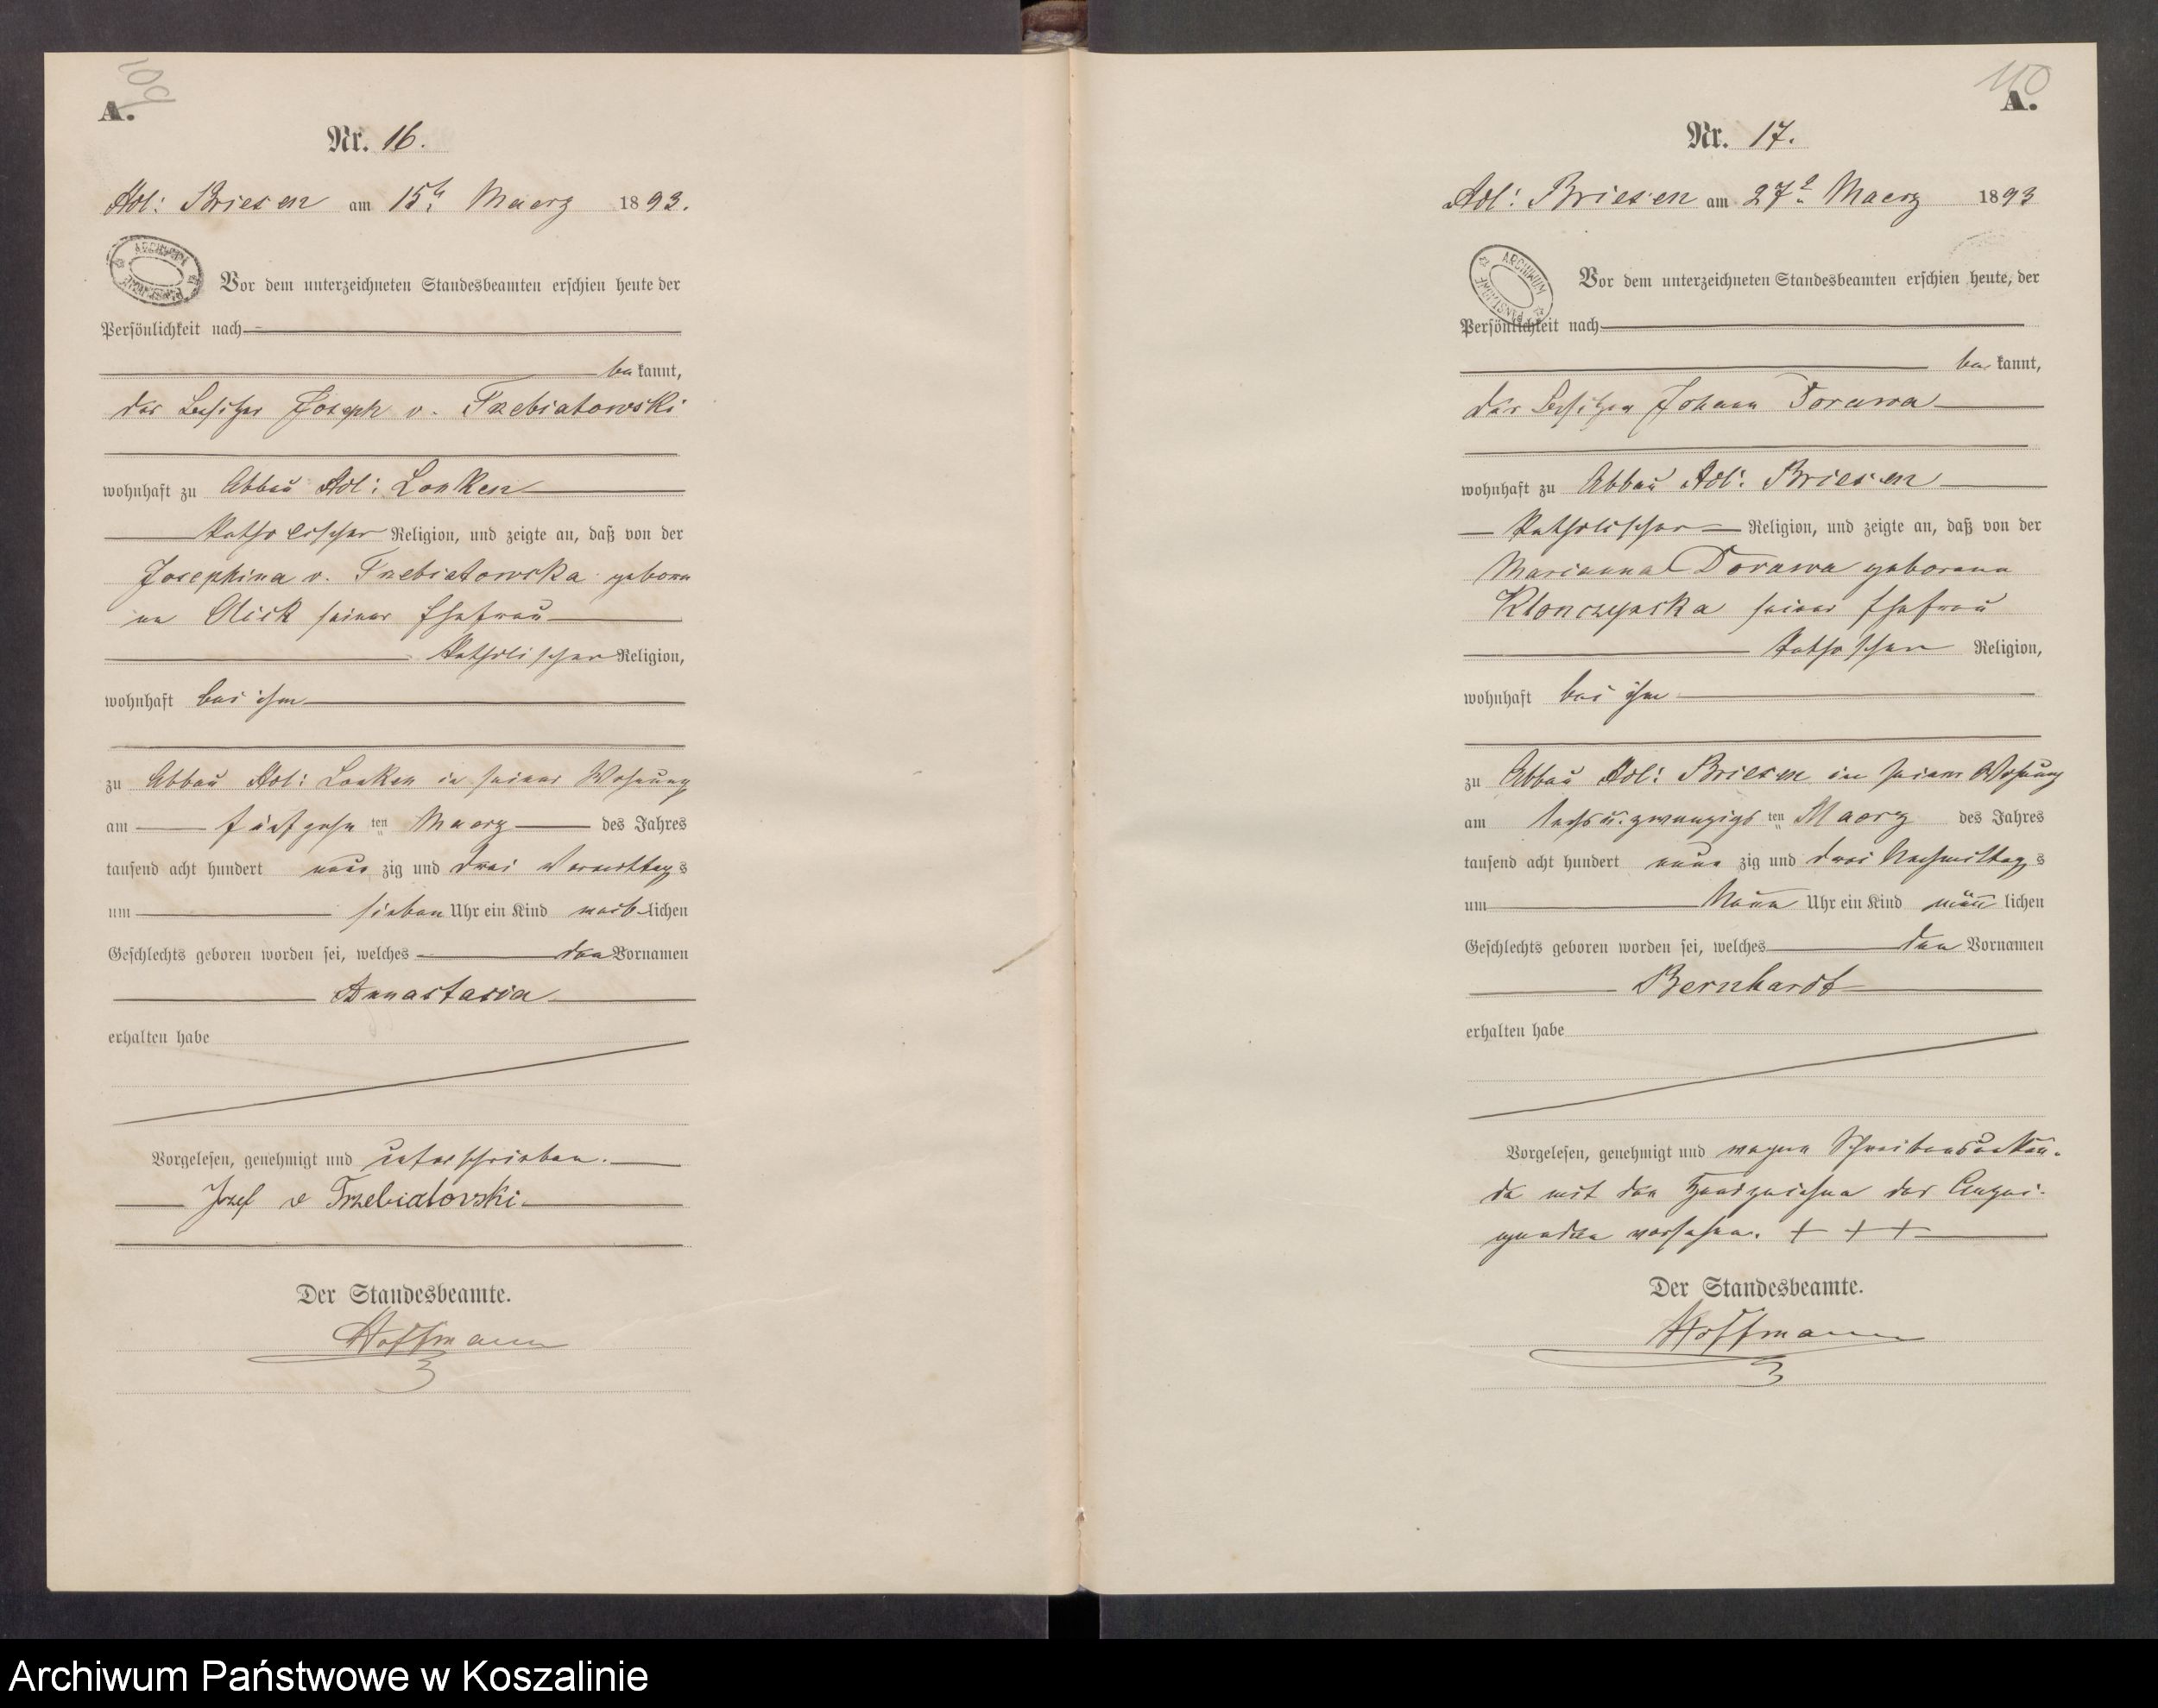 109
A.
Nr. 16.
Adl: Briesen am 15t. Maerz 1893.
ARCHIWUM PAŃSTWOWE
Vor dem unterzeichneten Standesbeamten erschien heute der
Persönlichkeit nach
be kannt,
der Besitzer Joseph v. Trzebiatowski
wohnhaft zu Abbau Adl: Lonken
katholischer Religion, und zeigte an, daß von der
Josephina v. Trzebiatowska gebore
ne Olick seiner Ehefrau
katholischer Religion,
wohnhaft bei ihm
zu Abbau Adl: Lonken in seiner Wohnung
am fünfzehn ten Maerz des Jahres
tausend acht hundert neun zig und drei Vormittag s
um sieben Uhr ein Kind weib lichen
Geschlechts geboren worden sei, welches den Vornamen
Annastasia
erhalten habe
Vorgelesen, genehmigt und unterschrieben.
Jozef v Trzebiatowski
Der Standesbeamte.
Hoffmann
110
A.
Nr. 17.
Adl: Briesen am 27t. Maerz 1893
ARCHIWUM PAŃSTWOWE
Vor dem unterzeichneten Standesbeamten erschien heute, der
Persönlichkeit nach
be kannt,
der Besitzer Johann Dorawa
wohnhaft zu Abbau Adl: Briesen
katholischer Religion, und zeigte an, daß von der
Marianna Dorawa geborene
Klonczynska seiner Ehefrau
Religion,
wohnhaft bei ihm
zu Abbau Adl: Briesen in seiner Wohnung
am sechs u. zwanzigs ten Maerz des Jahres
tausend acht hundert neun zig und drei Nachmittag s
um Neun Uhr ein Kind männ lichen
Geschlechts geboren worden sei, welches den Vornamen
Bernhardt
erhalten habe
Vorgelesen, genehmigt und wegen Schreibensunkun-
de mit den Handzeichen des Anzei-
genden versehen. + + +
Der Standesbeamte.
Hoffmann
Archiwum Państwowe w Koszalinie